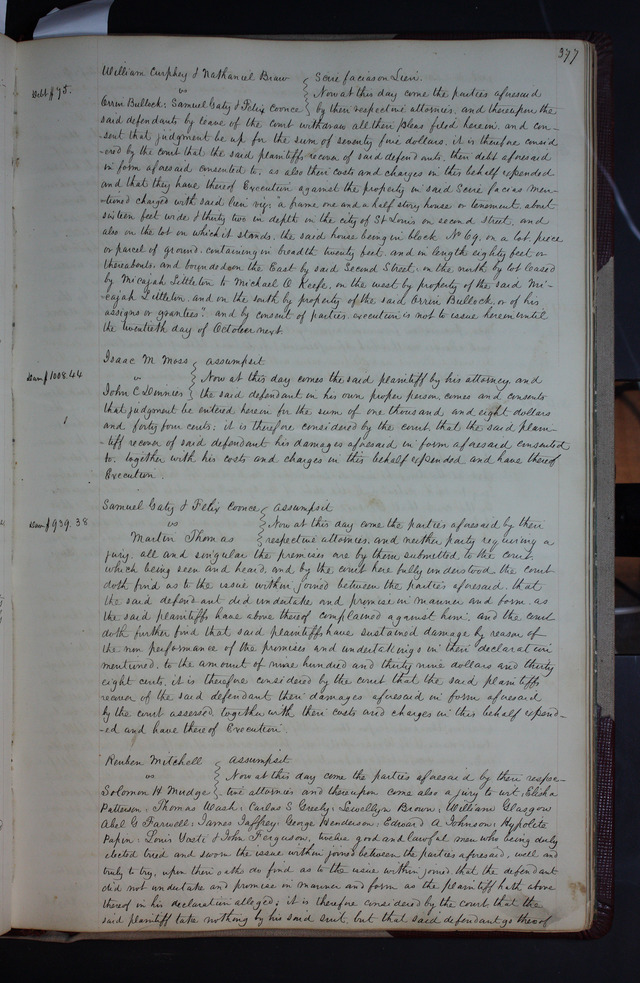 377
William Curphey & Nathaniel Braw } Scire facias on Lien.
Debt $75.
vs } Now at this day come the parties aforesaid
Orrin Bullock; Samuel Gaty & Felix Coonce } by their respective attornies, and thereupon the
said defendants by leave of the court withdraw all their pleas filed herein, and con-
sent that judgment be up for the sum of seventy five dollars, it is therefore consid
-ered by the court that the said plaintiffs recover of said defendants, their debt aforesaid
in form aforesaid consented to, as also their costs and charges in this behalf expended
and that they have thereof Execution against the property in said Scire facias men-
-tioned charged with said lien viz; "a frame one and a half story house or tenement, about
sixteen feet wide & thirty two in depth in the city of St Louis on second street, and
also on the lot on which it stands, the said house being in block No 69, on a lot, piece
or parcel of ground, containing in breadth twenty feet, and in length eighty feet or
thereabouts, and bounded on the East by said Second Street, on the north by lot leased
by Micajah Littleton to Michael O Keefe, on the west by property of the said Mi-
-cajah Littleton, and on the south by property of the said Orrin Bullock, or of his
assigns or grantees"; and by consent of parties, execution is not to issue herein until
the twentieth day of October next
Isaac M Moss } assumpsit
Dam $1008.44
vs } Now at this day comes the said plaintiff by his attorney, and
John C Dennies } the said defendant in his own proper person, comes and consents
that judgment be entered herein for the sum of one thousand and eight dollars
and forty four cents; it is therefore considered by the court, that the said plain-
-tiff recover of said defendant his damages aforesaid in form aforesaid consented
to, together with his costs and charges in this behalf expended, and have thereof
Execution.
Samuel Gaty & Felix Coonce } assumpsit
Dam $939.38
vs } Now at this day come the parties aforesaid by their
Martin Thomas } respective attornies, and neither party requiring a
jury, all and singular the premises are by them submitted to the court,
which being seen and heard, and by the court here fully understood, the court
doth find as to the issue within joined between the parties aforesaid, that
the said defendant did undertake and promise in manner and form, as
the said plaintiffs have above thereof complained against him; and the court
doth further find that said plaintiffs have sustained damage by reason of
the non performance of the promises and undertakings in their declaration
mentioned, to the amount of nine hundred and thirty nine dollars and thirty
eight cents, it is therefore considered by the court that the said plaintiffs
recover of the said defendant their damages aforesaid in form aforesaid
by the court assessed, together with their costs and charges in this behalf expend-
-ed and have thereof Execution.
Reuben Mitchell } assumpsit
vs } Now at this day come the parties aforesaid by their respec-
Solomon H Mudge } tive attornies and thereupon come also a jury to wit; Elisha
Patterson; Thomas Wash; Carlos S Greely; Lewellyn Brown; William Glasgow
Abel G Farwell; James Gaffrey; George Henderson; Edward A Johnson; Hypolite
Papin; Louis Yosti & John Ferguson, twelve good and lawful men who being duly
elected tried and sworn the issue within joined between the parties aforesaid, well and
truly to try, upon their oaths do find as to the issue within joined that the defendant
did not undertake and promise in manner and form as the plaintiff hath above
thereof in his declaration alleged; it is therefore considered by the court that the
said plaintiff take nothing by his said suit, but that said defendant go thereof